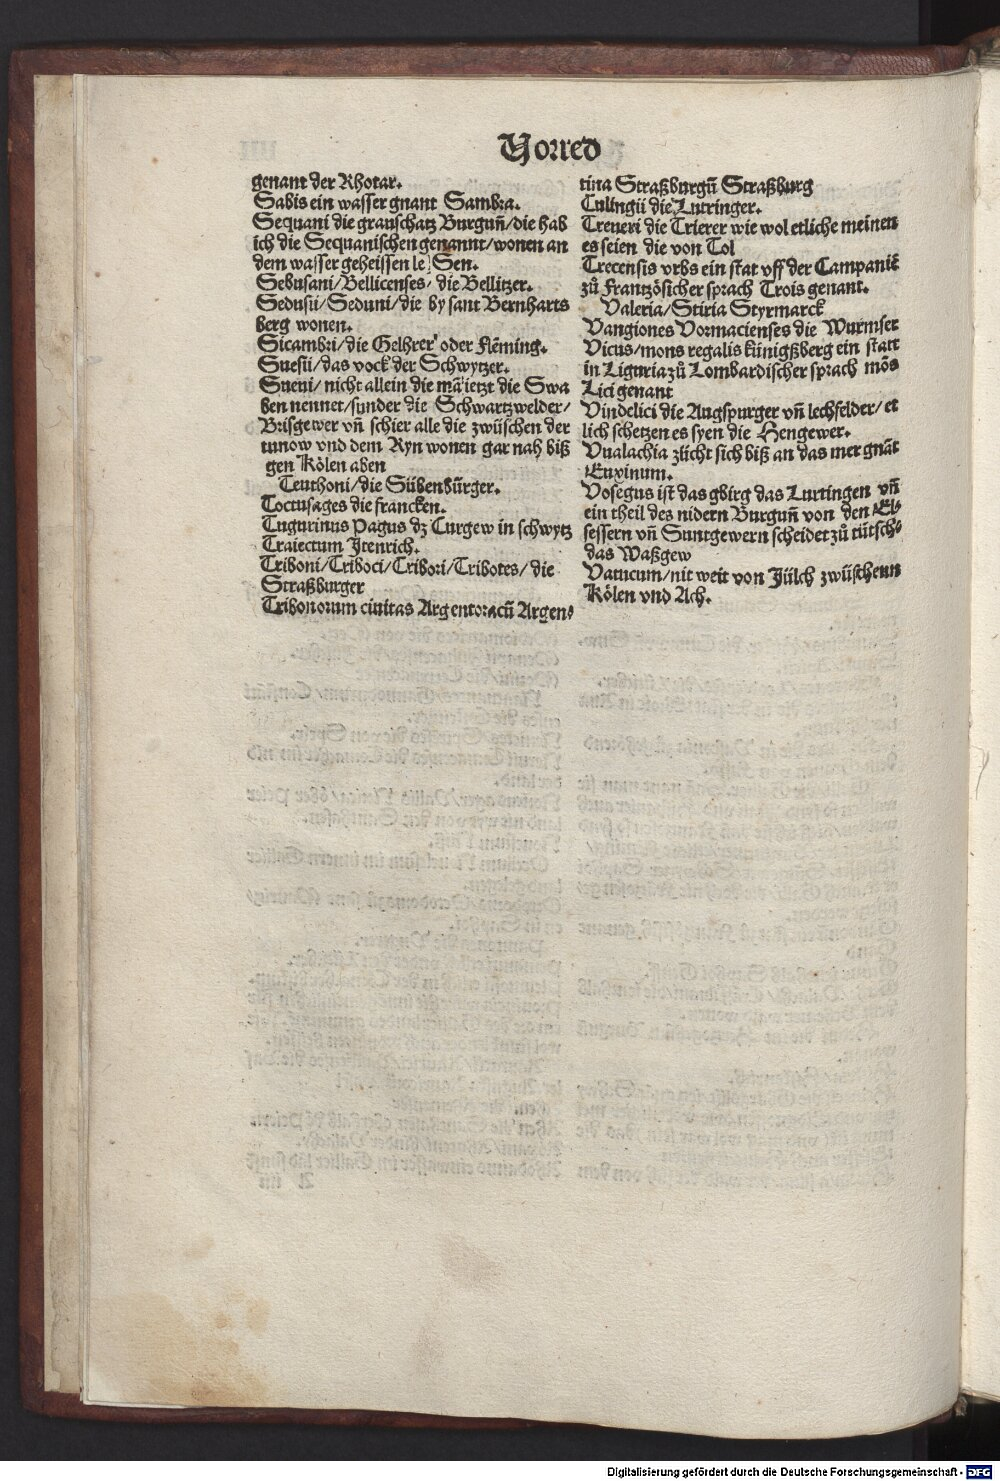 Vorred
genant der Rhotar.
Sabis ein wasser gnant Sambra.
Sequani die grauschatz Burgun̄/die hab
ich die Sequanischen genannt/wonen an
dem wasser geheissen le Sen.
Sebusani/Bellicenses/ die Bellitzer.
Sedusii/Seduni/die by sant Bernharts
berg wonen.
Sicambri/die Gelhrer oder Flēming.
Suesii/das vock der Schwytzer.
Sueui/ nicht allein die mā ietzt die Swa
ben nennet/sunder die Schwartzwelder/
Brisgewer vn̄ schier alle die zwüschen der
tunow vnd dem Ryn wonen gar nah biß
gen Kölen aben
Teuthoni/die Sübenbürger.
Toctusages die francken.
Tugurinus Pagus dz Turgew in schwytz
Traiectum Jtenrich.
Triboni/Triboci/Tribori/Tribotes/ die
Straßburger
Tribonorum ciuitas Argentoracū Argen⸗
tina Straßburgū Straßburg
Tulingii die Lutringer.
Treueri die Trierer wie wol etliche meinen
es seien die von Tol
Trecensis vrbs ein stat vff der Campaniē
zů Frantzösicher sprach Trois genant.
Valeria/Stiria Styrmarck
Vangiones Vormacienses die Wurmser
Vicus/mons regalis künigßberg ein statt
in Liguria zů Lombardischer sprach mōs
Lici genant
Vindelici die Augspurger vn̄ lechfelder/ et
lich schetzen es syen die Hengewer.
Vualachia zücht sich biß an das mer gnāt
Euxinum.
Vosegus ist das gbirg das Lurtingen vn̄
ein theil des nidern Burgun̄ von den El⸗
sessern vn̄ Suntgewern scheidet zů tütsch⸗
das Waßgew
Vatucum/nit weit von Jülch zwüschenn
Kölen vnd Ach.
Digitalisierung gefördert durch die Deutsche Forschungsgemeinschaft - DFG